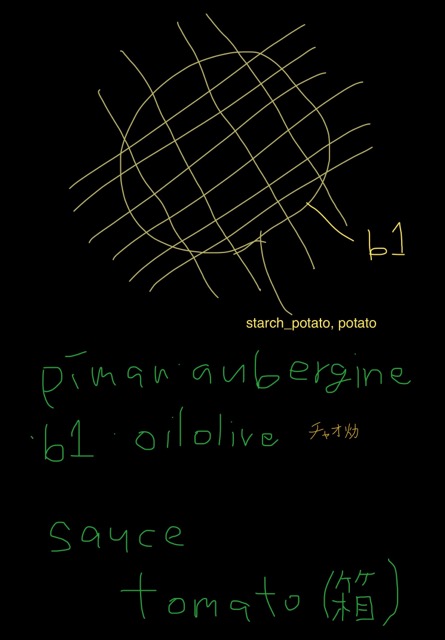 b1
starch_potato, potato
piman aubergine
b1 oilolive チャオ炒
sauce
tomato (箱)